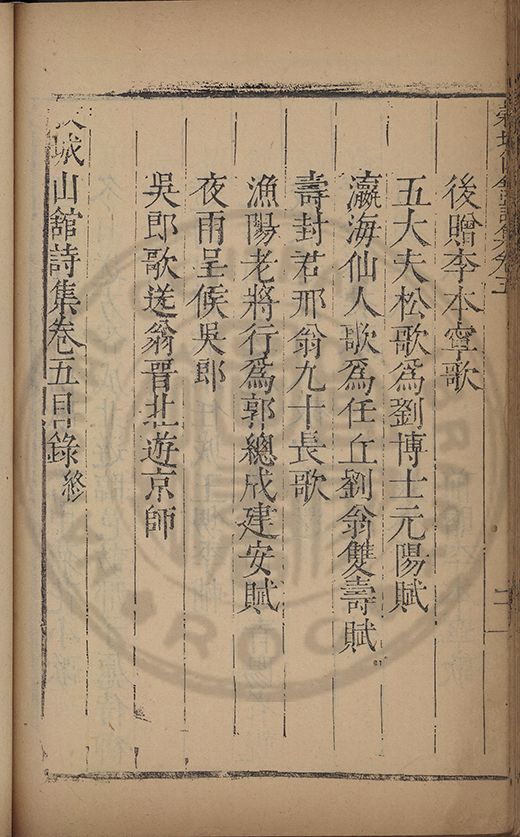 後贈李本寧歌
五大夫松歌為劉博士元陽賦
瀛海仙人歌為任丘劉翁雙壽賦
壽封君邢翁九十長歌
漁陽老將行為郭總戎建安賦
夜雨呈侯吳郎
吳郎歌送翁晉北遊京師
城山館詩集卷五目錄終